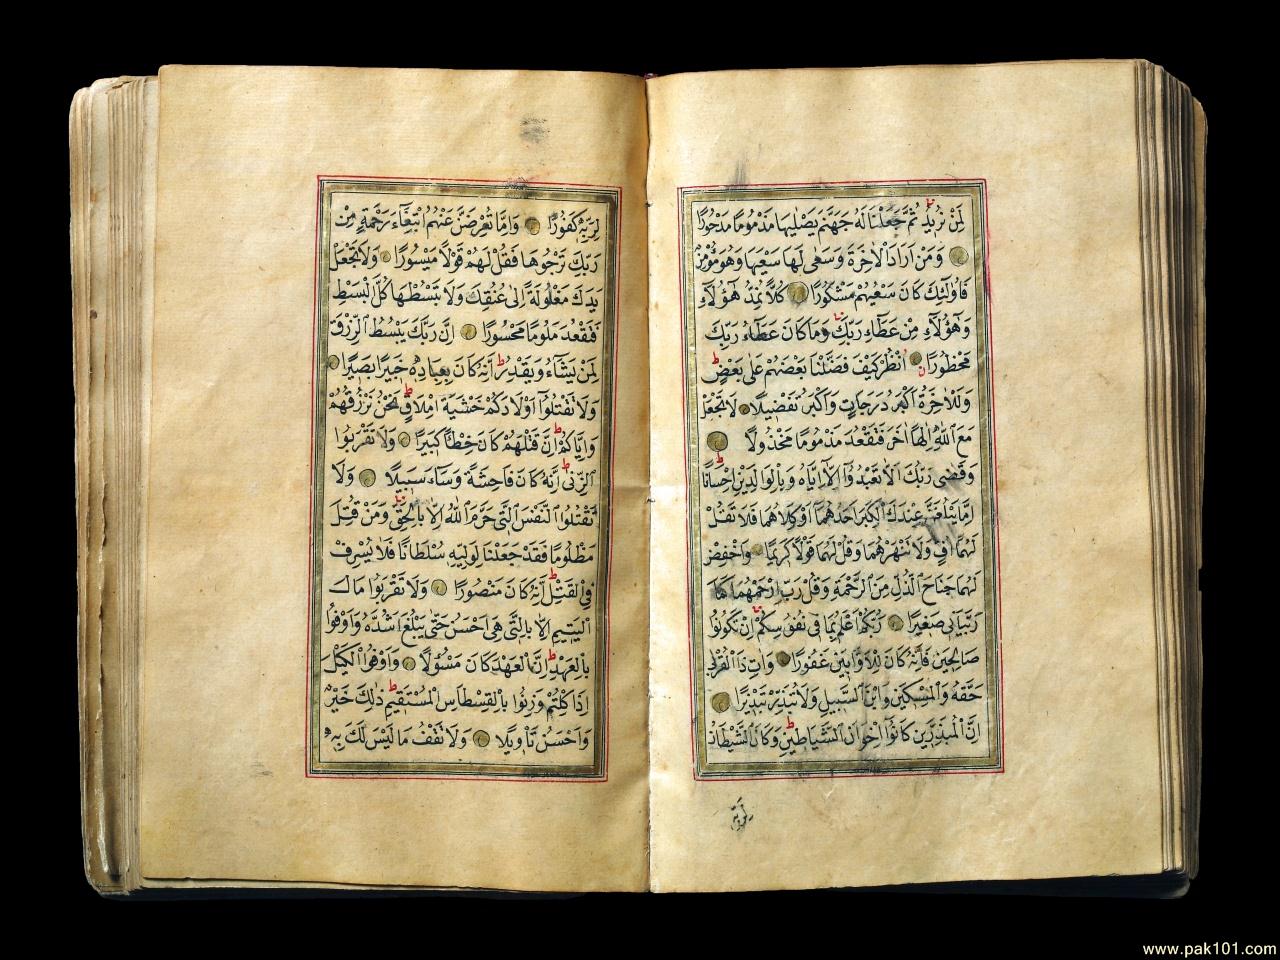 لِمَنْ نُرِيدُ ثُمَّ جَعَلْنَا لَهُ جَهَنَّمَ يَصْلَيهَا مَذْمُومًا مَدْحُورًا
وَمَنْ اَرَادَ الْاٰخِرَةَ وَسَعٰى لَهَا سَعْيَهَا وَهُوَ مُؤْمِنٌ
فَاُولٰئِكَ كَانَ سَعْيُهُمْ مَشْكُورًا كُلًّا نُمِدُّ هٰؤُلَاءِ
وَهٰؤُلَاءِ مِنْ عَطَاءِ رَبِّكَ وَمَا كَانَ عَطَاءُ رَبِّكَ
مَحْظُورًا اُنْظُرْ كَيْفَ فَضَّلْنَا بَعْضَهُمْ عَلٰى بَعْضٍ
وَلَلْاٰخِرَةُ اَكْبَرُ دَرَجَاتٍ وَاَكْبَرُ تَفْضِيلًا لَا تَجْعَلْ
مَعَ اللّٰهِ اِلٰهًا اٰخَرَ فَتَقْعُدَ مَذْمُومًا مَخْذُولًا
وَقَضٰى رَبُّكَ اَلَّا تَعْبُدُوا اِلَّا اِيَّاهُ وَبِالْوَالِدَيْنِ اِحْسَانًا
اِمَّا يَبْلُغَنَّ عِنْدَكَ الْكِبَرَ اَحَدُهُمَا اَوْ كِلَاهُمَا فَلَا تَقُلْ
لَهُمَا اُفٍّ وَلَا تَنْهَرْهُمَا وَقُلْ لَهُمَا قَوْلًا كَرِيمًا وَاخْفِضْ
لَهُمَا جَنَاحَ الذُّلِّ مِنَ الرَّحْمَةِ وَقُلْ رَبِّ ارْحَمْهُمَا كَمَا
رَبَّيَانِي صَغِيرًا رَبُّكُمْ اَعْلَمُ بِمَا فِي نُفُوسِكُمْ اِنْ تَكُونُوا
صَالِحِينَ فَاِنَّهُ كَانَ لِلْاَوَّابِينَ غَفُورًا وَاٰتِ ذَا الْقُرْبٰى
حَقَّهُ وَالْمِسْكِينَ وَابْنَ السَّبِيلِ وَلَا تُبَذِّرْ تَبْذِيرًا
اِنَّ الْمُبَذِّرِينَ كَانُوا اِخْوَانَ الشَّيَاطِينِ وَكَانَ الشَّيْطَانُ
لِرَبِّهِ
لِرَبِّهِ كَفُورًا وَاِمَّا تُعْرِضَنَّ عَنْهُمُ ابْتِغَاءَ رَحْمَةٍ مِنْ
رَبِّكَ تَرْجُوهَا فَقُلْ لَهُمْ قَوْلًا مَيْسُورًا وَلَا تَجْعَلْ
يَدَكَ مَغْلُولَةً اِلٰى عُنُقِكَ وَلَا تَبْسُطْهَا كُلَّ الْبَسْطِ
فَتَقْعُدَ مَلُومًا مَحْسُورًا اِنَّ رَبَّكَ يَبْسُطُ الرِّزْقَ
لِمَنْ يَشَاءُ وَيَقْدِرُ اِنَّهُ كَانَ بِعِبَادِهِ خَبِيرًا بَصِيرًا
وَلَا تَقْتُلُوا اَوْلَادَكُمْ خَشْيَةَ اِمْلَاقٍ نَحْنُ نَرْزُقُهُمْ
وَاِيَّاكُمْ اِنَّ قَتْلَهُمْ كَانَ خِطْئًا كَبِيرًا وَلَا تَقْرَبُوا
الزِّنٰى اِنَّهُ كَانَ فَاحِشَةً وَسَاءَ سَبِيلًا وَلَا
تَقْتُلُوا النَّفْسَ الَّتِي حَرَّمَ اللّٰهُ اِلَّا بِالْحَقِّ وَمَنْ قُتِلَ
مَظْلُومًا فَقَدْ جَعَلْنَا لِوَلِيِّهِ سُلْطَانًا فَلَا يُسْرِفْ
فِي الْقَتْلِ اِنَّهُ كَانَ مَنْصُورًا وَلَا تَقْرَبُوا مَالَ
الْيَتِيمِ اِلَّا بِالَّتِي هِيَ اَحْسَنُ حَتّٰى يَبْلُغَ اَشُدَّهُ وَاَوْفُوا
بِالْعَهْدِ اِنَّ الْعَهْدَ كَانَ مَسْؤُلًا وَاَوْفُوا الْكَيْلَ
اِذَا كِلْتُمْ وَزِنُوا بِالْقِسْطَاسِ الْمُسْتَقِيمِ ذٰلِكَ خَيْرٌ
وَاَحْسَنُ تَاْوِيلًا وَلَا تَقْفُ مَا لَيْسَ لَكَ بِهِ
www.pak101.com